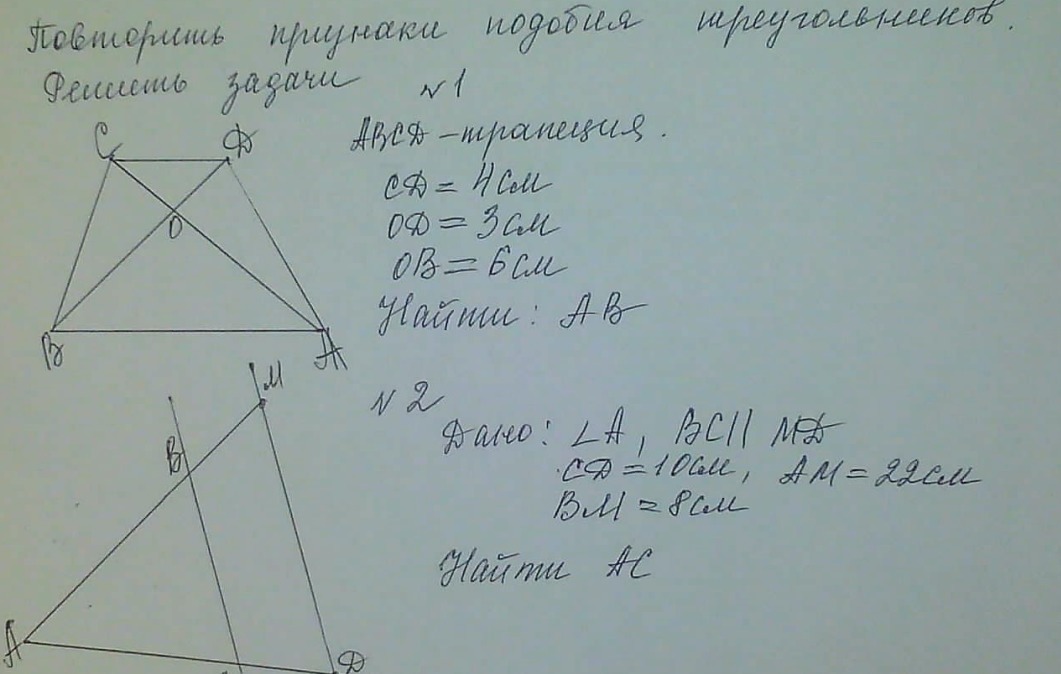 Повторить признаки подобия треугольников.
Решить задачи
№1
C
D
O
B
A
ABCD – трапеция.
CD = 4 см
OD = 3 см
OB = 6 см
Найти: AB
№2
M
B
A
D
Дано: ∠A, BC || MD
CD = 10 см, AM = 22 см
BM = 8 см
Найти AC